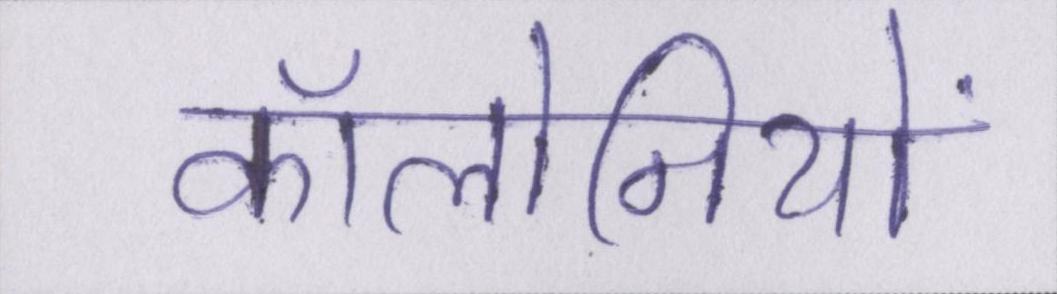 कॉलोनियों